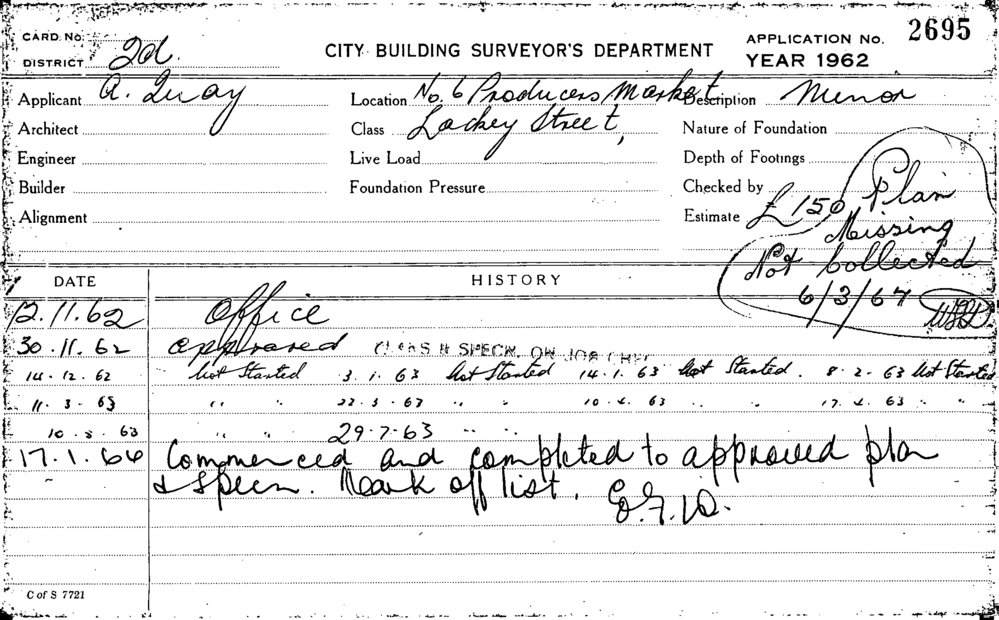 CARD. No.
DISTRICT 2d.
CITY BUILDING SURVEYOR'S DEPARTMENT
APPLICATION No. 2695
YEAR 1962
Applicant A. Quay
Location No. 6 Producers Market
Description Minor
Architect
Class Lackey Street,
Nature of Foundation
Engineer
Live Load
Depth of Footings
Builder
Foundation Pressure
Checked by
Alignment
Estimate £150
Plan
Missing
Not Collected
6/3/67
DATE HISTORY
12.11.62 Office
30.11.62 approved & SPECN. ON JOB
14.12.62 Not Started 3.1.63 Not Started 14.1.63 Not Started. 8.2.63 Not Started
11.3.63 " " 22.3.63 " " 10.4.63 " " 17.4.63 " "
10.5.63 " " 29.7.63 " "
17.1.64 Commenced and completed to approved plan
& Specn. Mark off list.
C of S 7721